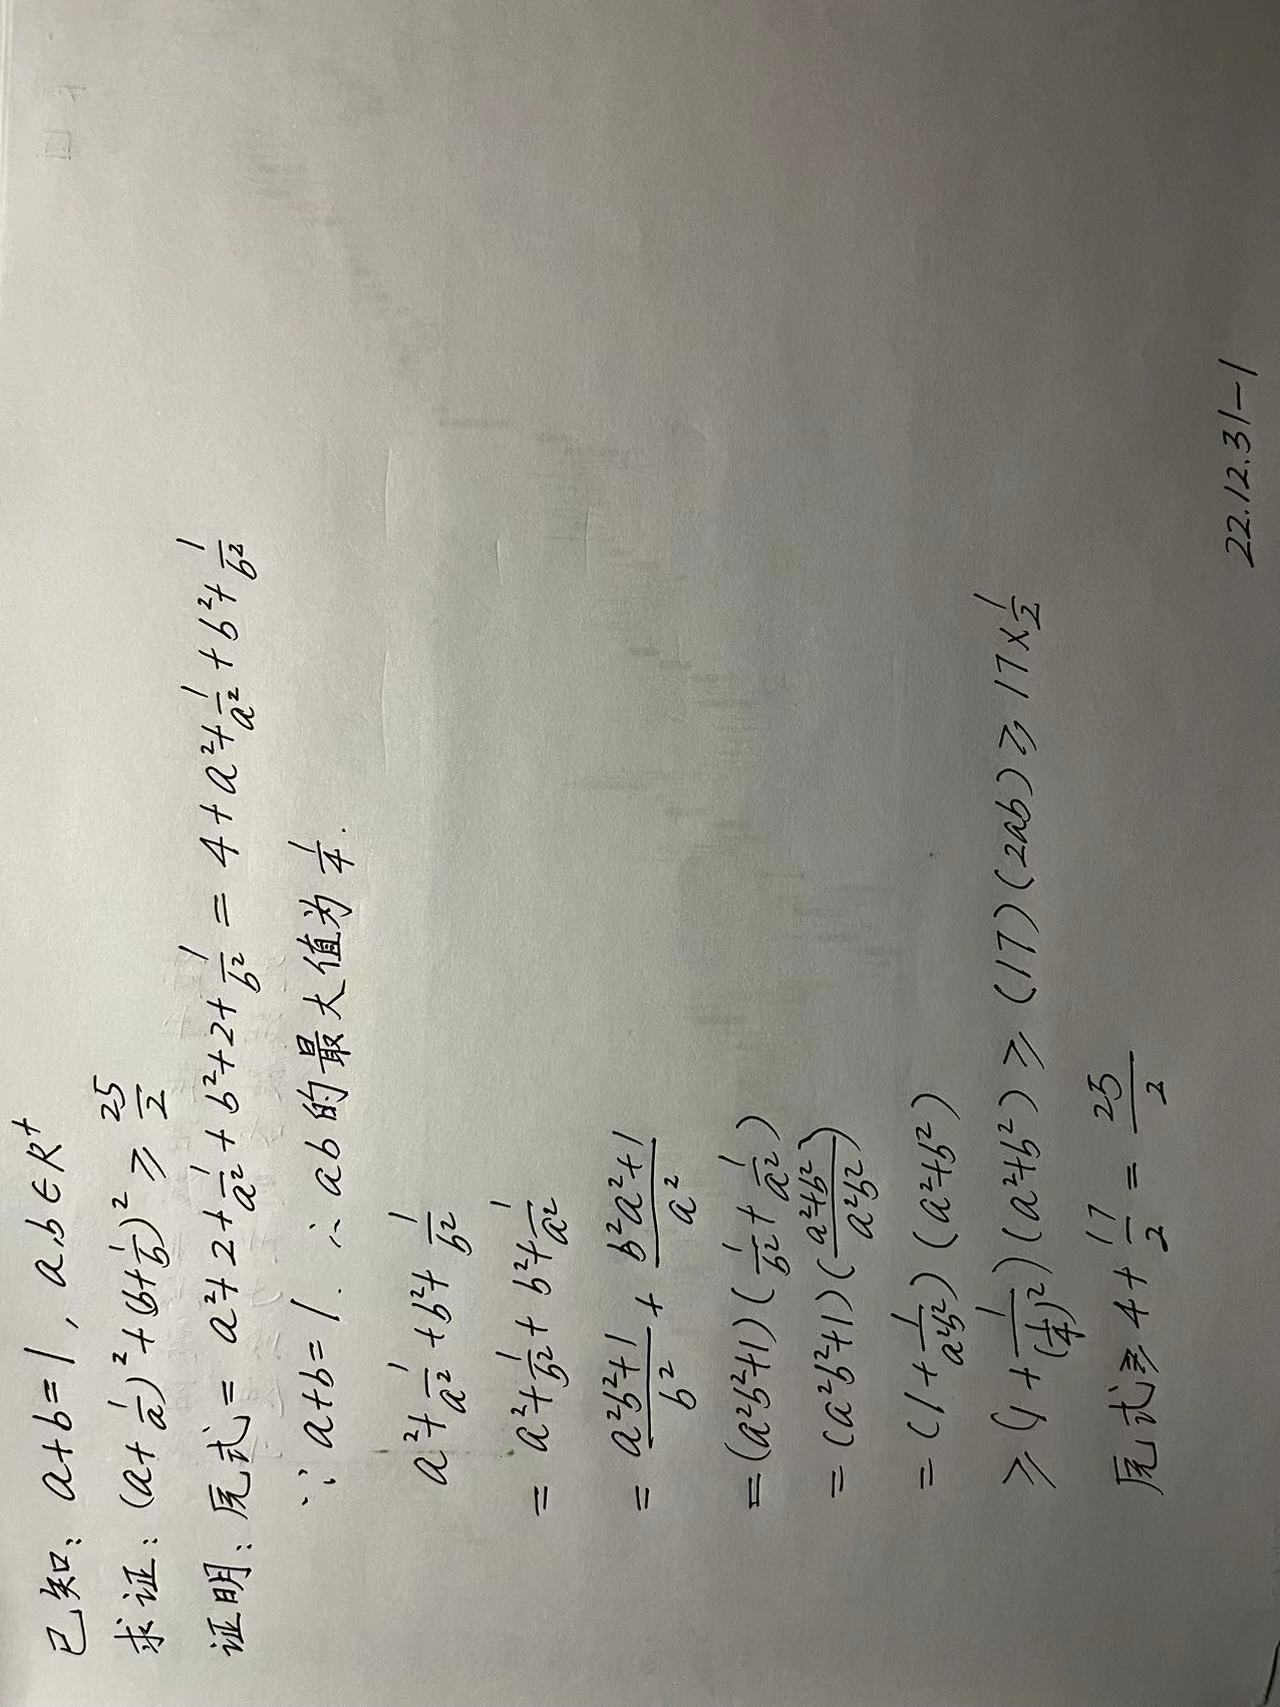 已知: a+b=1, a,b∈R⁺
求证: (a+1/a)²+(b+1/b)²≥25/2
证明: 原式= a²+2+1/a²+b²+2+1/b² = 4+a²+1/a²+b²+1/b²
∵a+b=1. ∴ab的最大值为1/4.
a²+1/a²+b²+1/b²
= a²+1/b²+b²+1/a²
= (a²b²+1)/b² + (b²a²+1)/a²
=(a²b²+1)(1/b²+1/a²)
=(a²b²+1)((a²+b²)/(a²b²))
=(1+1/(a²b²))(a²+b²)
≥(1+1/(1/4)²)(a²+b²)≥(17)(2ab)≥17×1/2
原式≥4+17/2=25/2
22.12.31-1